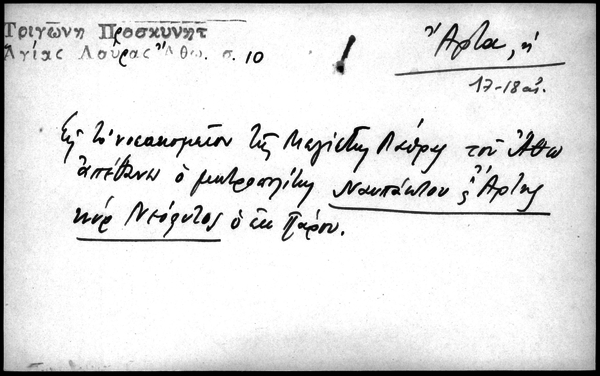 Τριγώνη Προσκυνητ
Ἁγίας Λαύρας Ἄθω. σ. 10
Ἄρτα, ἡ
17-18 αἰ.
Εἰς τὸ νοσοκομεῖον τῆς Μεγίστης Λαύρας τοῦ Ἄθω
ἀπέθανε ὁ μητροπολίτης Ναυπάκτου & Ἄρτης
κὺρ Νεόφυτος ὁ ἐκ Πάρου.